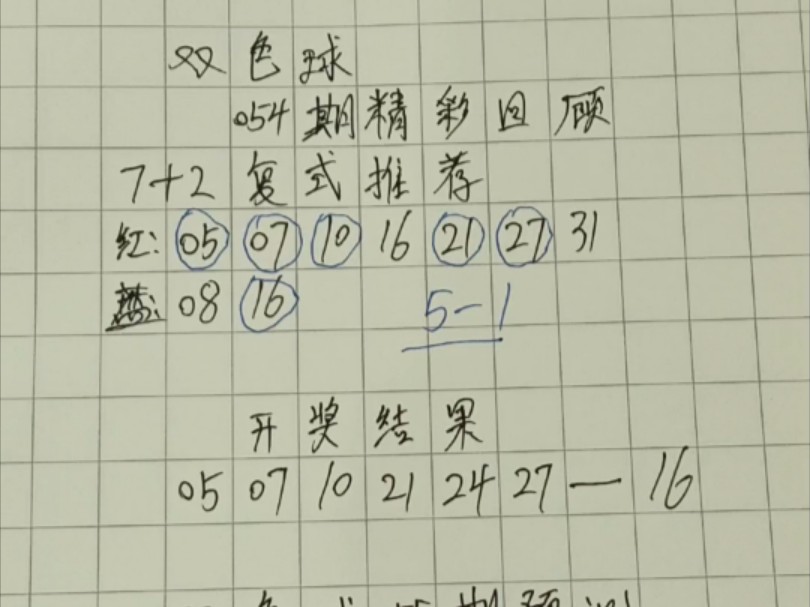 双色球
054期精彩回顾
7+2复式推荐
红: 05 07 10 16 21 27 31
蓝: 08 16 5-1
开奖结果
05 07 10 21 24 27 — 16